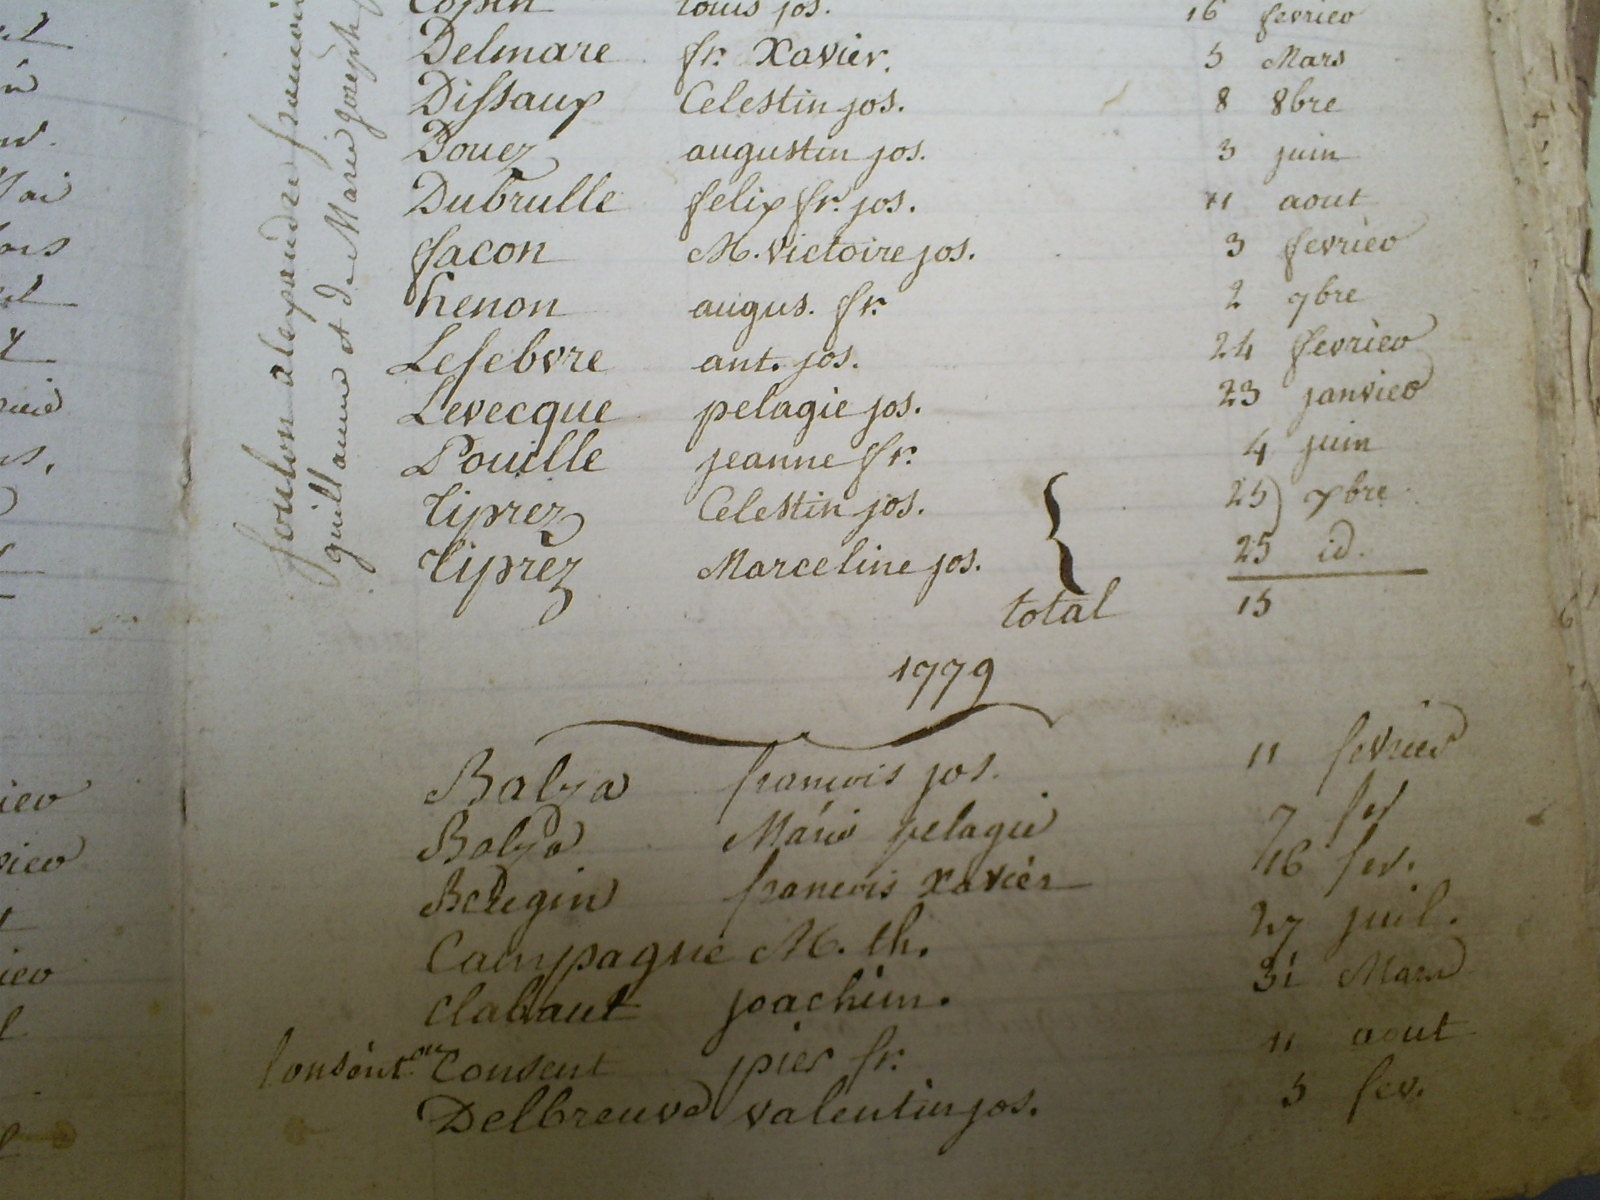 Copin louis jos. 16 fevrier
Delmare fr. Xavier. 5 Mars
Dissaux Celestin jos. 8 8bre
Douez augustin jos. 3 juin
Dubrulle felix fr. jos. 11 aout
facon M. victoire jos. 3 fevrier
henon augus. fr. 2 9bre
Lefebvre ant. jos. 24 fevrier
Levecque pelagie jos. 23 janvier
Pouille jeanne fr. 4 juin
Tiprez Celestin jos. 25 xbre
Tiprez Marceline jos. 25 id.
total 15
foulon alexandre
guillaume et de Marie joseph
1779
Balza francois jos. 11 fevrier
Balza Marie pelagie 7 fev
francois xavier 16 fev.
Campagne M. th. 27 juil.
Clabaut joachim. 31 Mars
Consent pier fr. 11 aout
valentin jos. 5 fev.